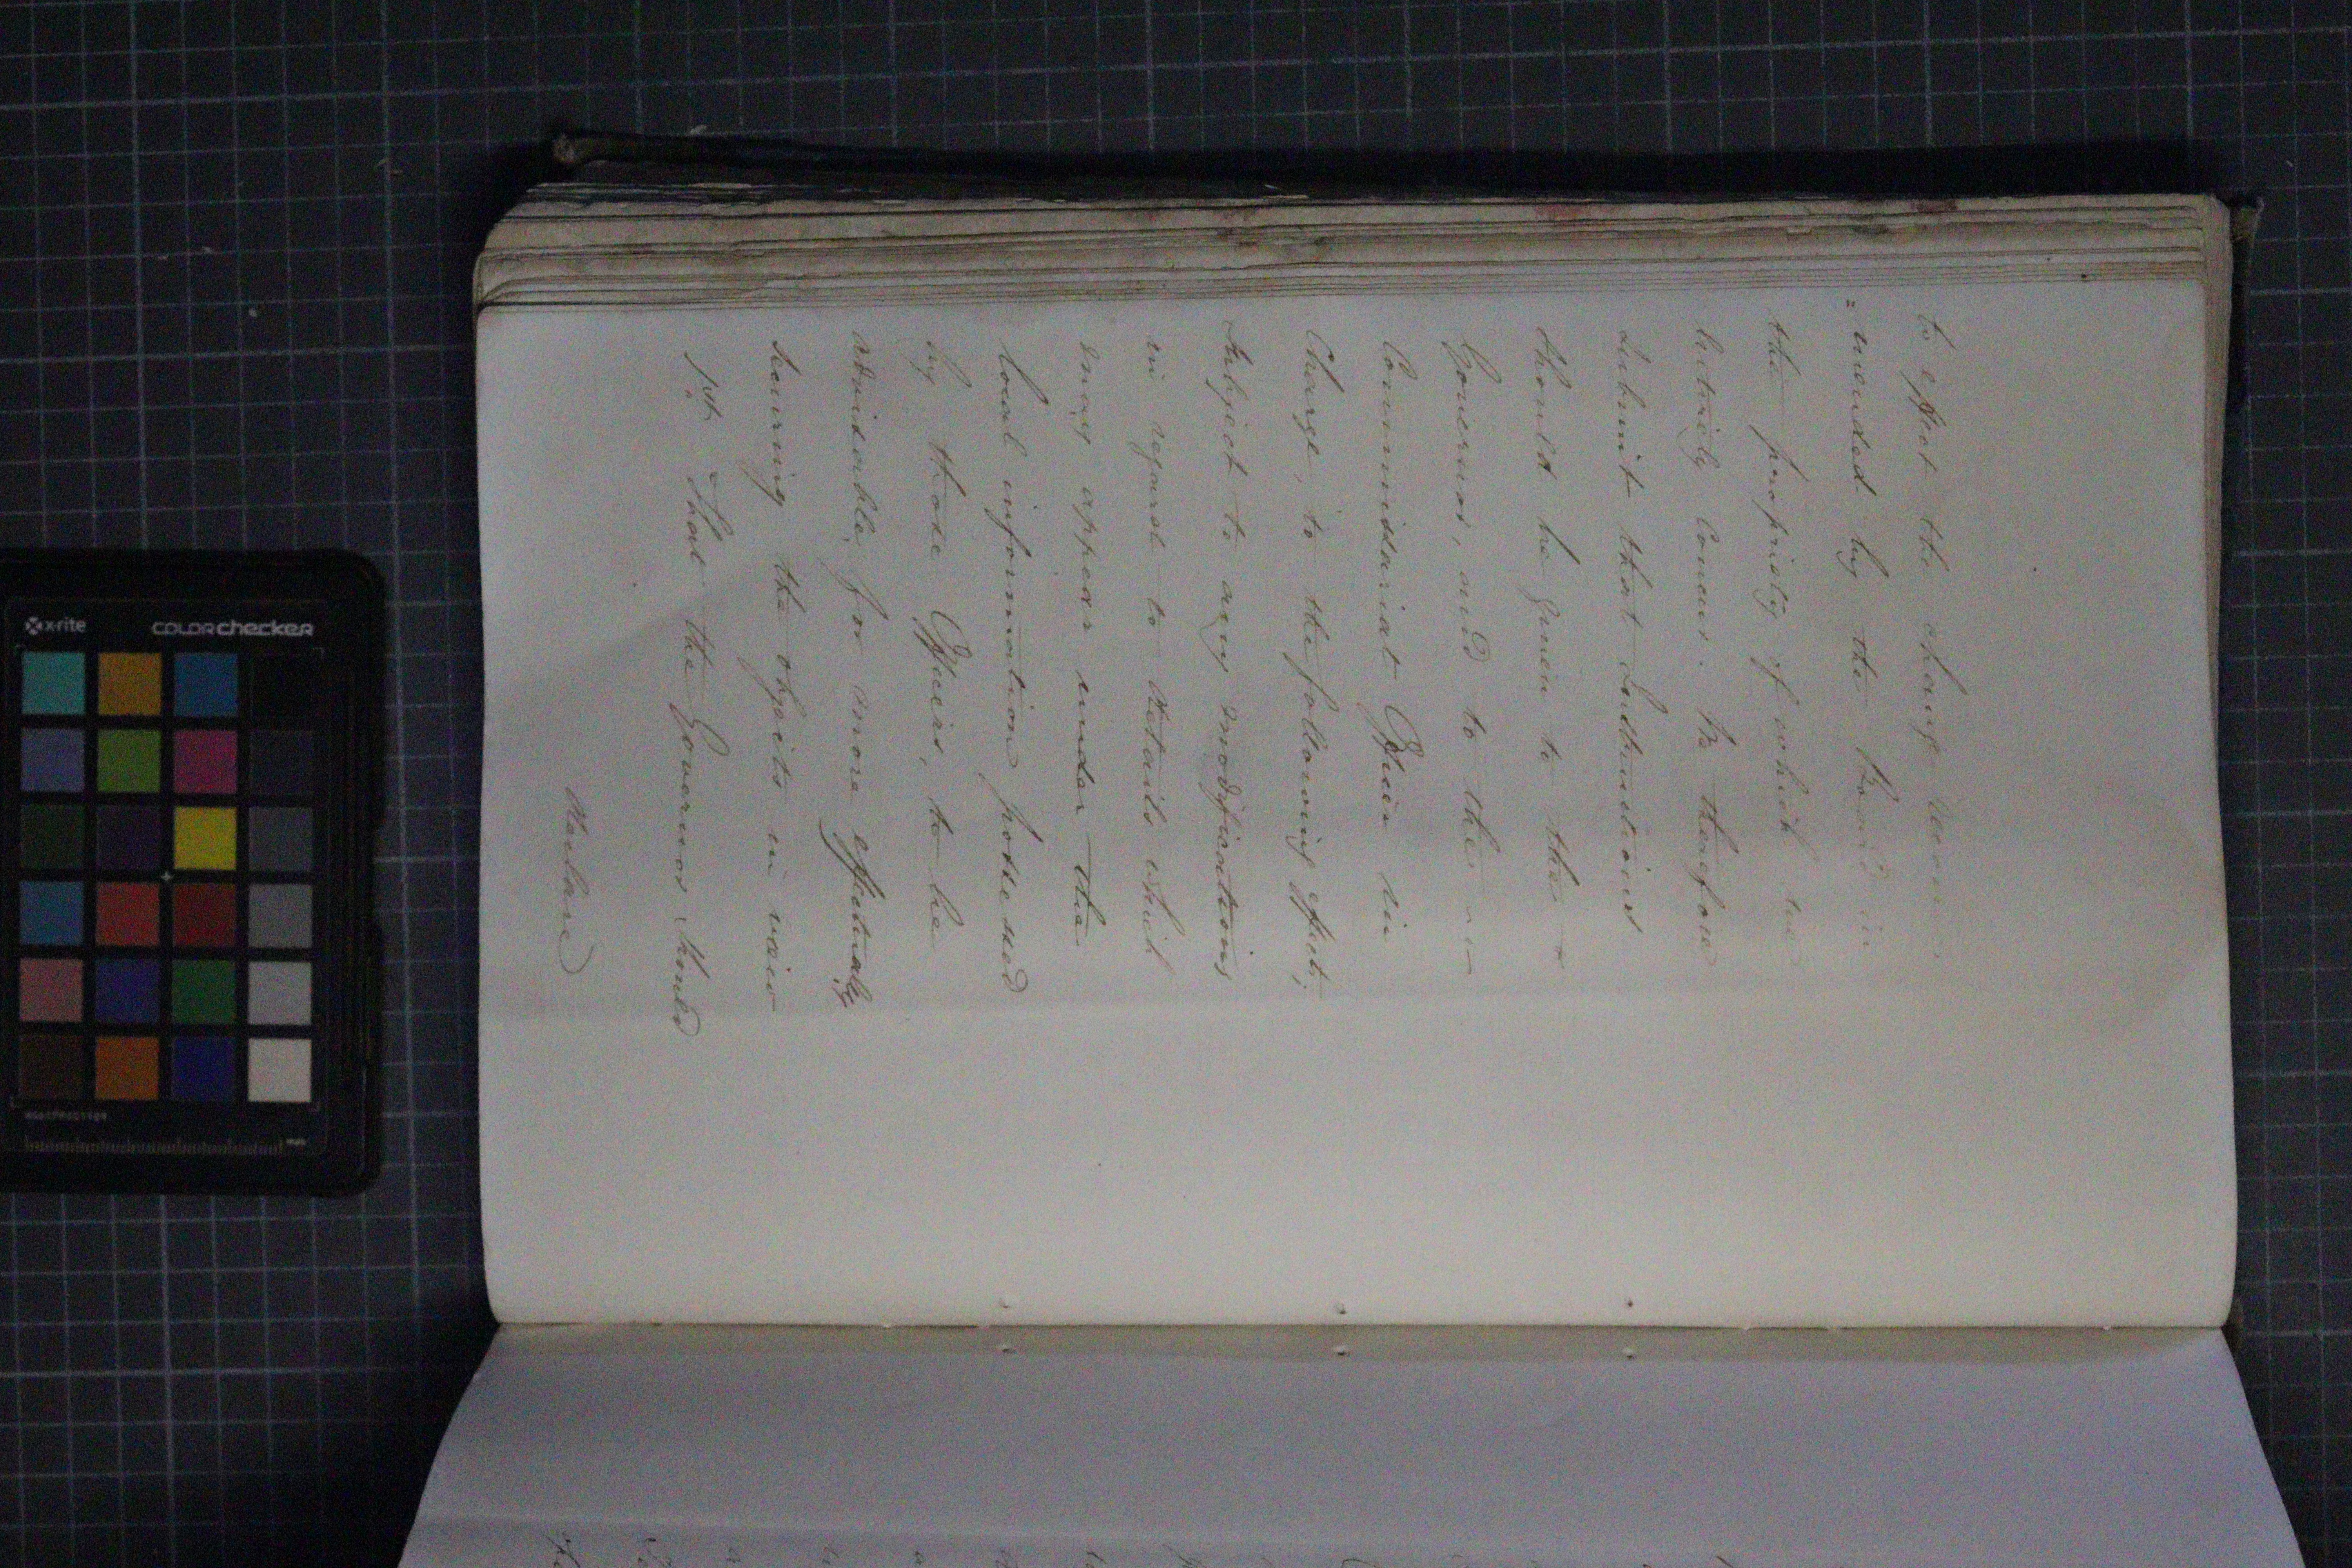 to effect the change recom-
=mended by the Board in
the propriety of which we
entirely concur. We therefore
submit that Instructions
should be given to the
Governor, and to the
Commissariat Officer in
Charge, to the following effect;
Subject to any modifications
in regard to details which
may appear under the
local information possessed
by those Officers, to be
advisable for more effectually
securing the objects in view
1st. That the Governor should
declare
x-rite
COLORchecker